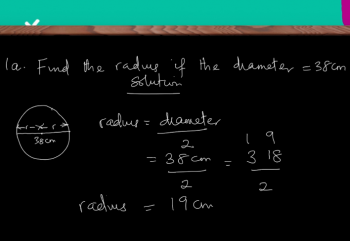 1a. Find the radius if the diameter = 38cm
Solution
radius = diameter
2
r r
38cm
= 38cm = 1 9
3 18
2 2
radius = 19cm